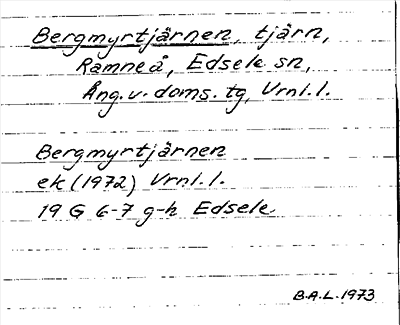 Bergmyrtjärnen, tjärn,
Ramneå, Edsele sn,
Ång.v. doms. tg, Vrnl.l.
Bergmyrtjärnen
ek (1972) Vrnl.l.
19 G 6-7 g-h Edsele
B.A.L. 1973